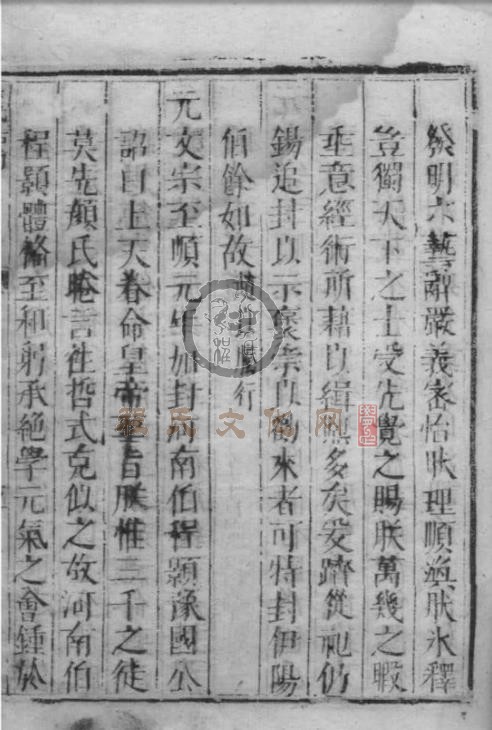 發明六藝辭嚴義密怡然理順渙然氷釋
豈獨天下之士受先覺之賜朕萬幾之暇
垂意經術所藉以緝熙多矣爰躋從祀仍
錫追封以示褒崇以勸來者可特封伊陽
伯餘如故
行
元文宗至順元年加封河南伯程顥豫國公
詔曰上天眷命皇帝聖旨朕惟三千之徒
莫先顏氏睠言往哲式克似之故河南伯
程顥體備至和躬承絶學元氣之會鍾於
程氏文化网